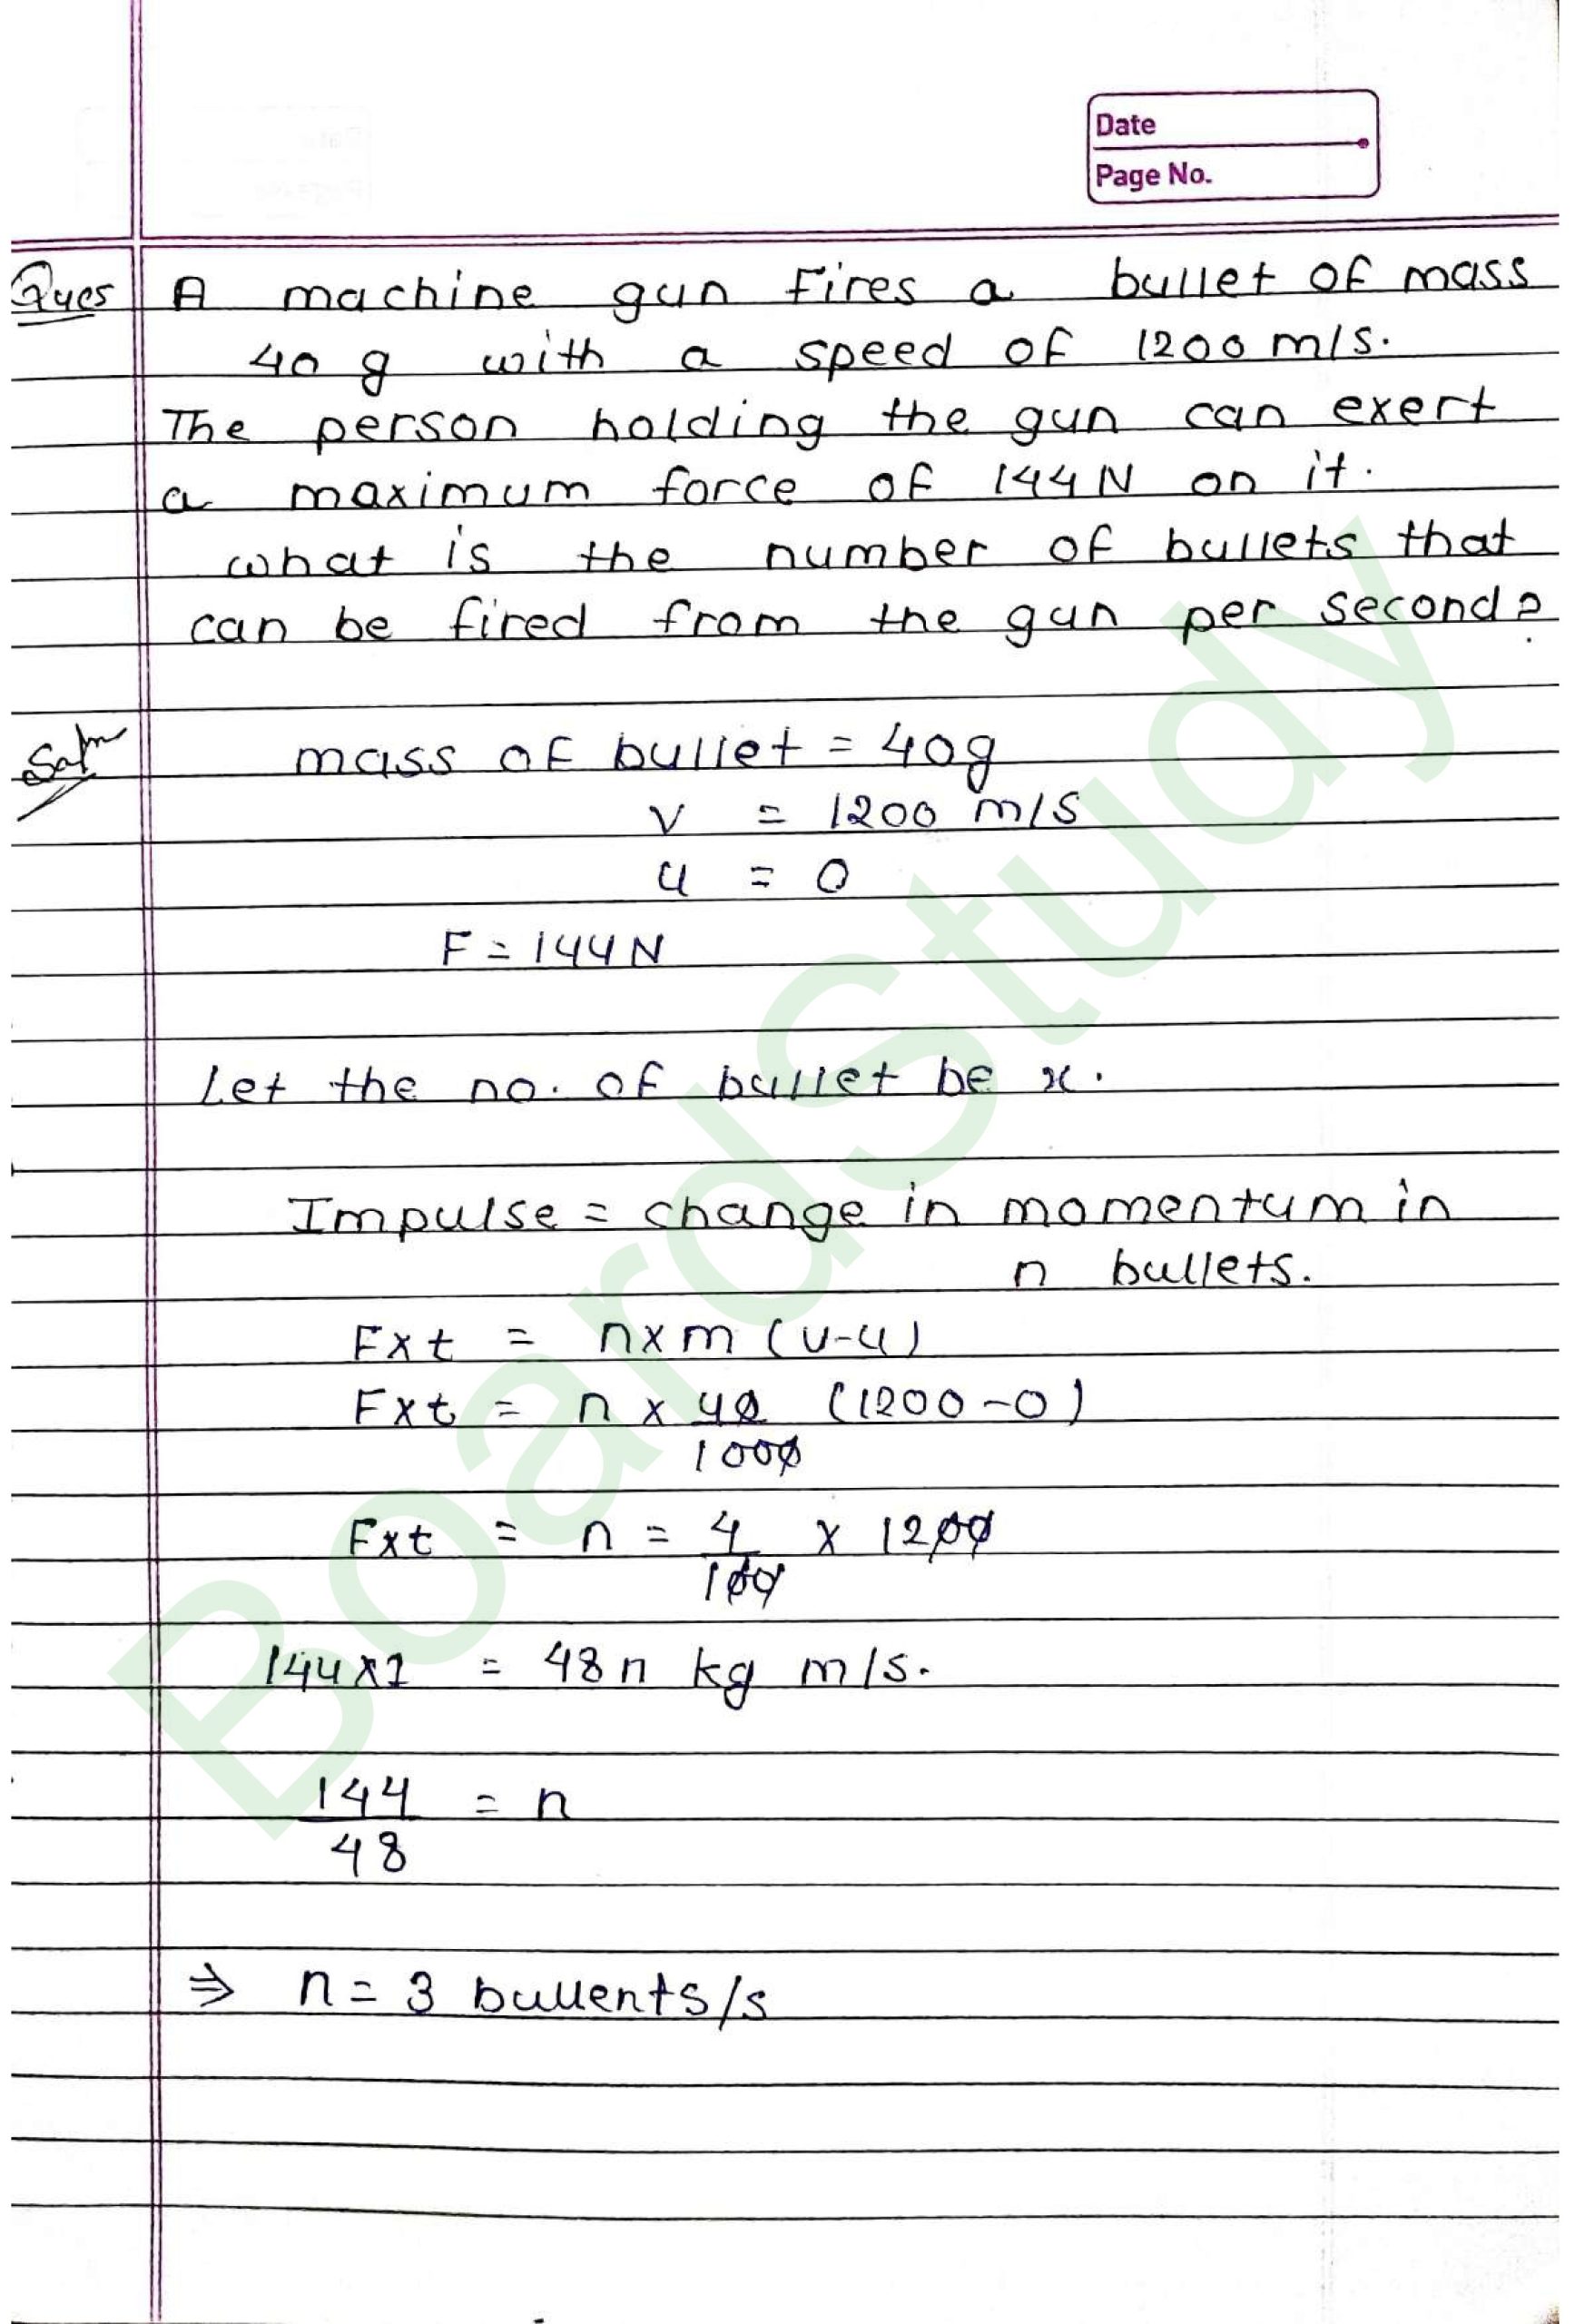 Date
Page No.
Ques A machine gun fires a bullet of mass
40 g with a speed of 1200 m/s.
The person holding the gun can exert
a maximum force of 144 N on it.
what is the number of bullets that
can be fired from the gun per second?
Soln mass of bullet = 40g
v = 1200 m/s
u = 0
F = 144 N
Let the no. of bullet be x.
Impulse = change in momentum in
n bullets.
F x t = n x m (v-u)
F x t = n x 40/1000 (1200 - 0)
F x t = n = 4/100 x 1200
144 x 1 = 48 n kg m/s.
144/48 = n
⇒ n = 3 bullents/s
BoardStudy